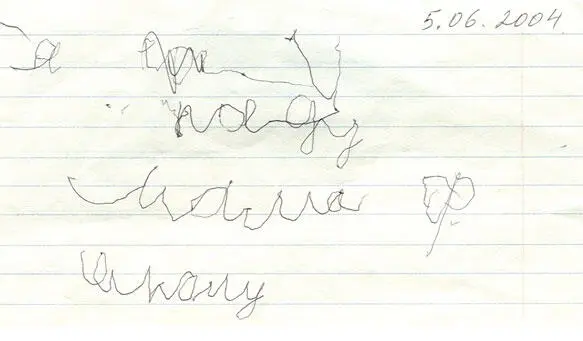 5.06.2004
я
поеду
мама в
школу